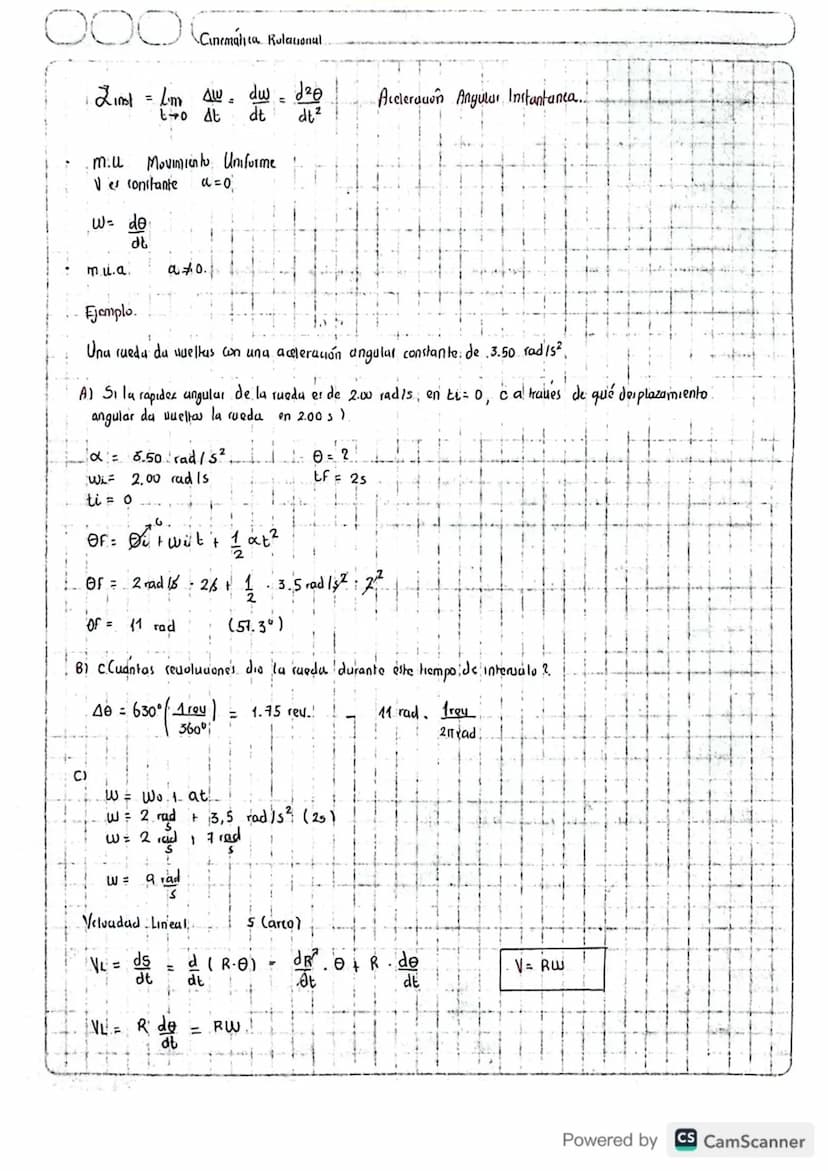 Cinemática Rotacional
αinst = Lim t→0 Δw/Δt = dw/dt = d²θ/dt² Aceleración Angular Instantanea..
· m.u Movimiento Uniforme
V es constante a=0
w= dθ/dt
· m.u.a. a≠0.
Ejemplo.
Una rueda da vueltas con una aceleración angular constante de 3.50 rad/s².
A) Si la rapidez angular de la rueda es de 2.00 rad/s, en ti=0, c a través de qué desplazamiento
angular da vueltas la rueda en 2.00 s)
α = 3.50 rad/s² θ = ?
wi= 2.00 rad/s tf = 2s
ti = 0
θf = θi⁰ + wit + 1/2 αt²
θf = 2 rad/s · 2s + 1/2 · 3.5 rad/s² · 2²
θf = 11 rad (57.3°)
B) c Cuántas revoluciones dio la rueda durante este tiempo de intervalo?.
Δθ = 630° (1 rev/360°) = 1.75 rev. – 11 rad. 1rev/2π rad
C)
w = wo + at
w = 2 rad/s + 3,5 rad/s² (2s)
w = 2 rad/s + 7 rad/s
w = 9 rad/s
Velocidad Lineal S (arco)
VL = ds/dt = d/dt (R·θ) = dR/dt · θ + R · dθ/dt V= RW
VL = R dθ/dt = RW
Powered by CS CamScanner